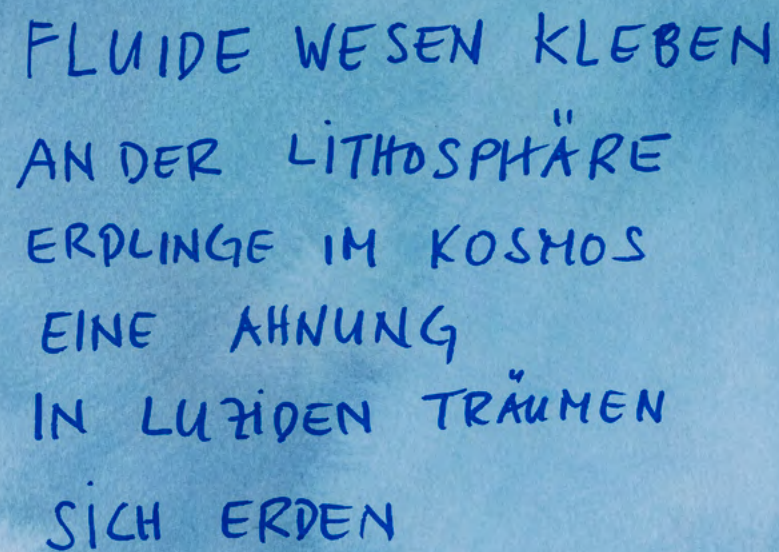 FLUIDE WESEN KLEBEN
AN DER LITHOSPHÄRE
ERDLINGE IM KOSMOS
EINE AHNUNG
IN LUZIDEN TRÄUMEN
SICH ERDEN